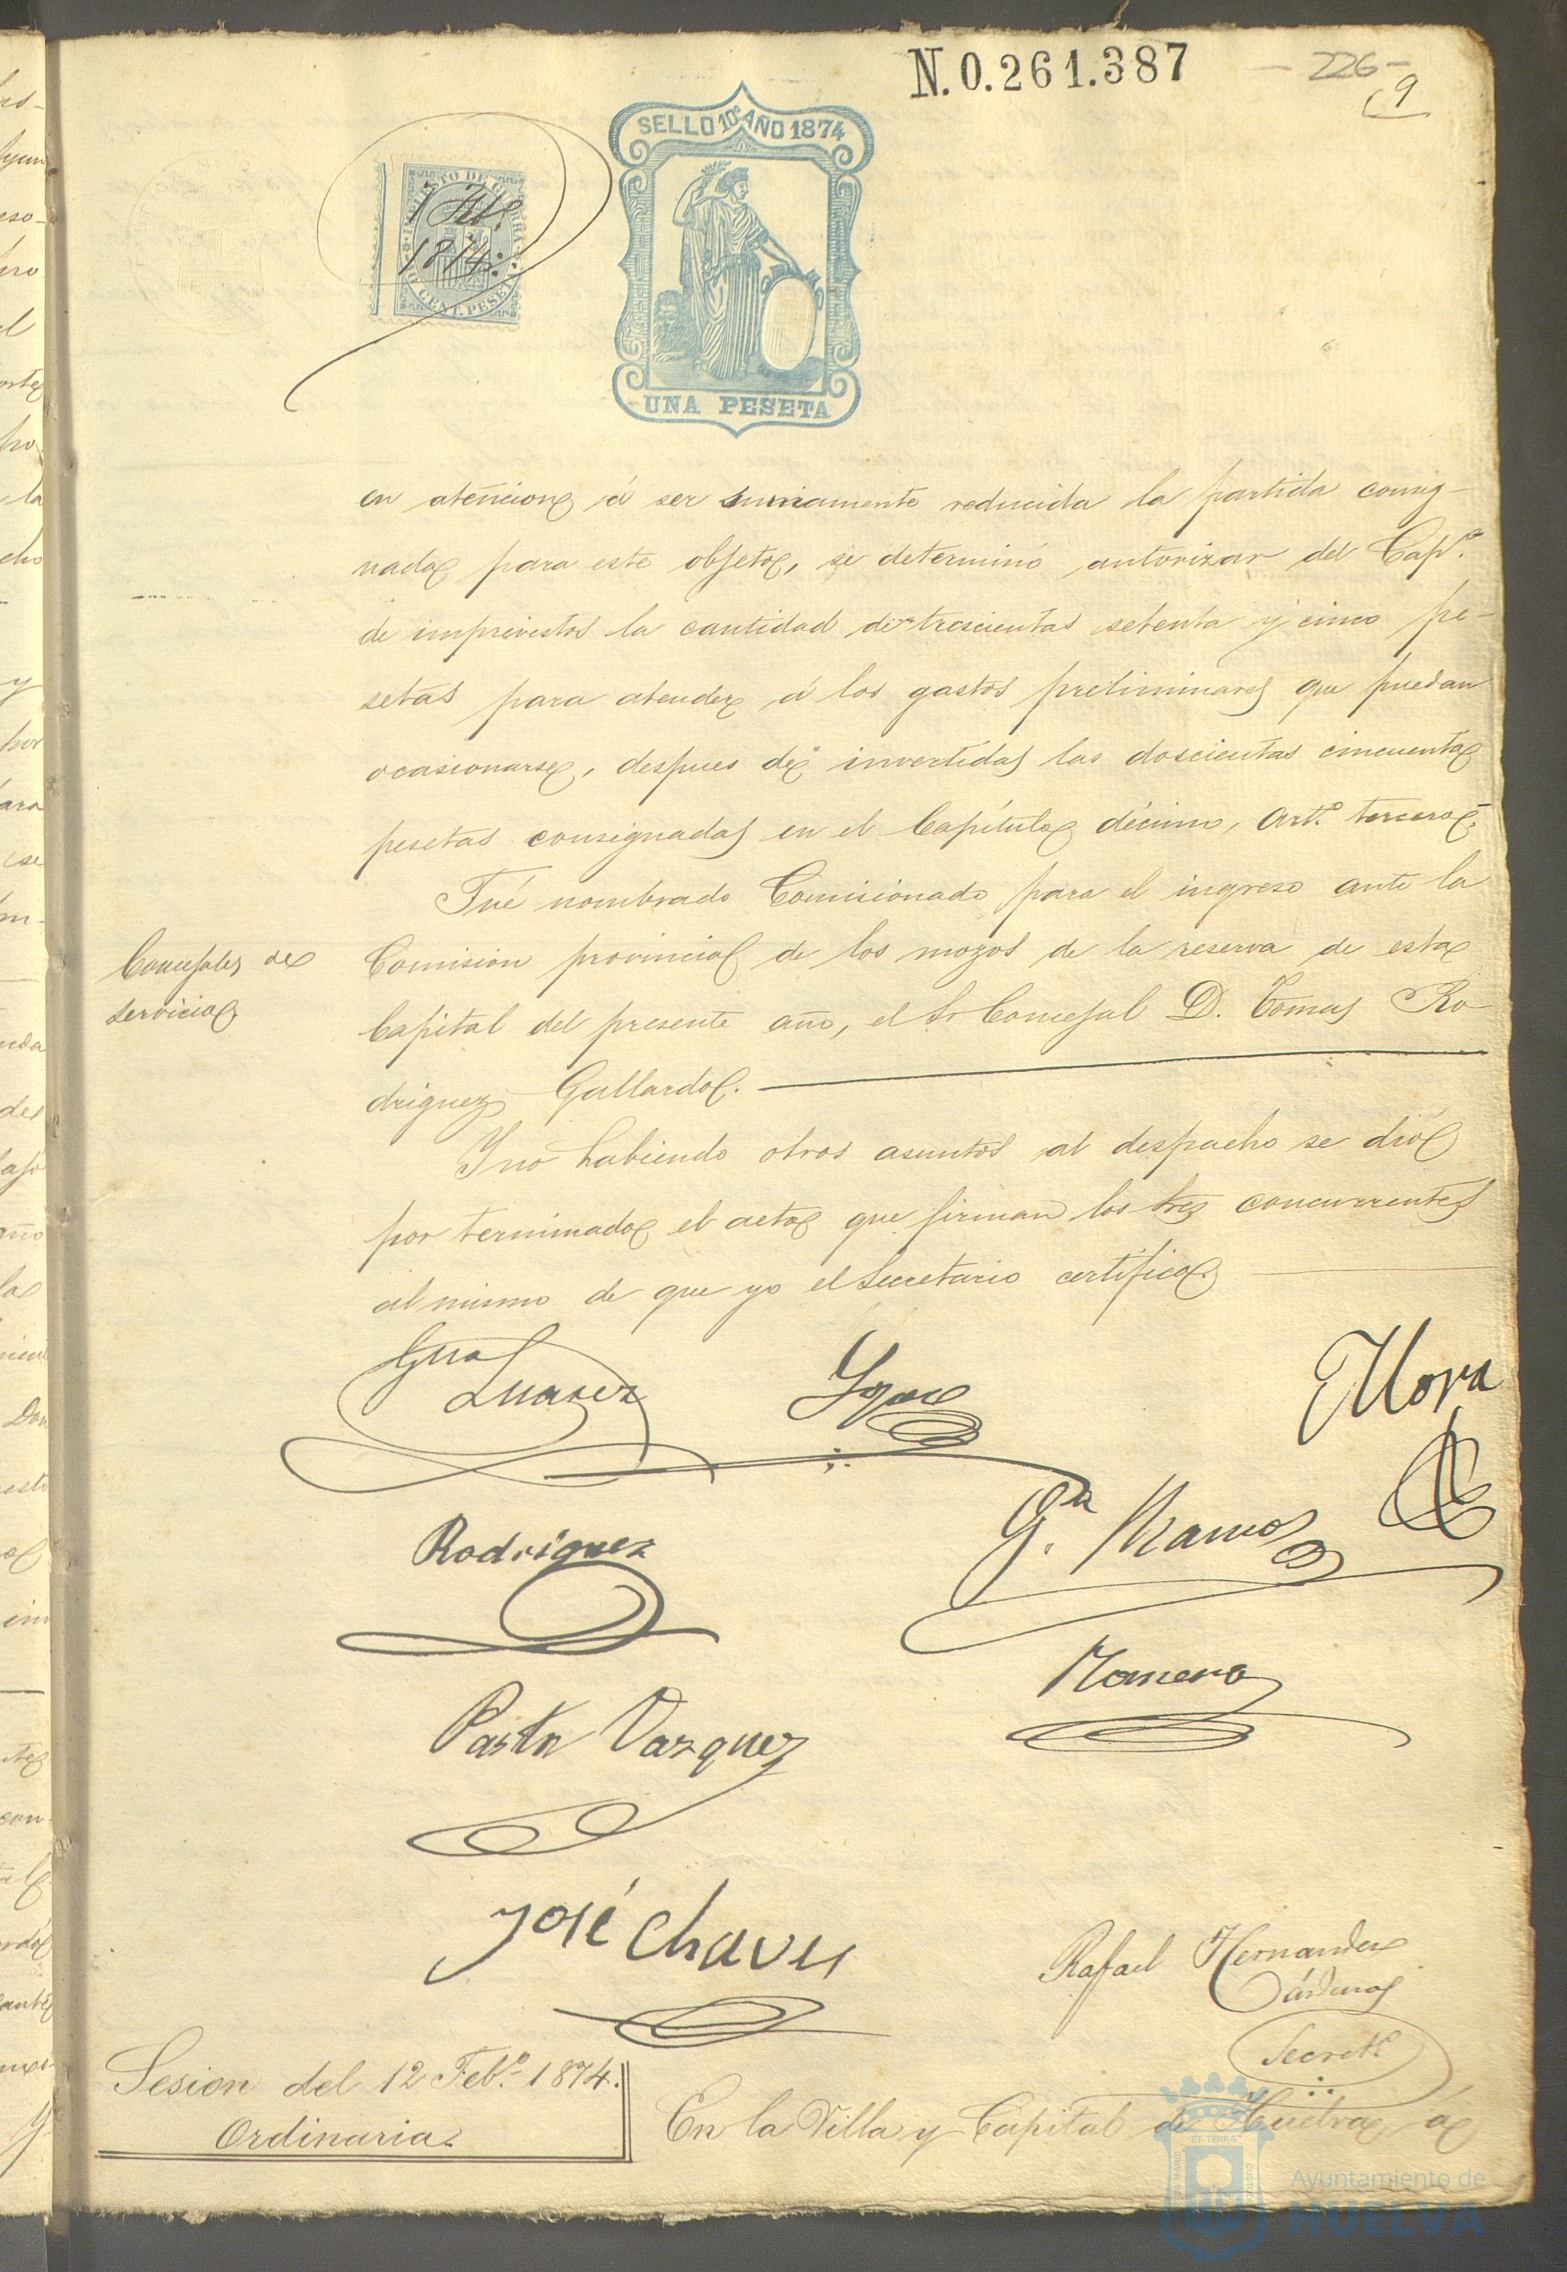 N. 0.261.387
- 226 -
9
SELLO 10º AÑO 1874
IMPUESTO DE GUERRA
1 Feb.
1874.
10 CENT. PESETA
UNA PESETA
en atencion á ser sumamente reducida la partida consig-
nada para este objeto, se determinó autorizar del Cap.º
de imprevistos la cantidad de trescientas setenta y cinco pe-
setas para atender á los gastos preliminares que puedan
ocasionarse, despues de invertidas las doscientas cincuenta
pesetas consignadas en el Capítulo décimo, Art.º tercero.
Fué nombrado Comisionado para el ingreso ante la
Concejales de
servicio
Comision provincial de los mozos de la reserva de esta
Capital del presente año, el Sr Concejal D. Tomas Ro-
driguez Gallardo.
Y no habiendo otros asuntos al despacho se dió
por terminado el acto que firman los Sres concurrentes
al mismo de que yo el Secretario certifico.
Suarez
EMora
Rodriguez
G.ª Ramos
Romero
Pastor Vazquez
José Chaves
Rafael Hernandez
Cárdenas
Secret.º
Sesion del 12 Feb.º 1874.
Ordinaria
En la Villa y Capital de Huelva á
Ayuntamiento de
HUELVA